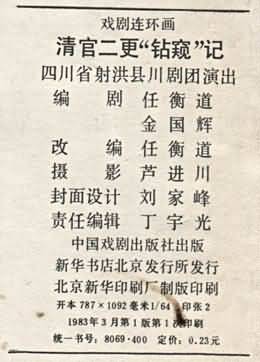 戏剧连环画
清官二更“钻窥”记
四川省射洪县川剧团演出
编 剧 任衡道
金国辉
改 编 任衡道
摄 影 芦进川
封面设计 刘家峰
责任编辑 丁宇光
中国戏剧出版社出版
新华书店北京发行所发行
北京新华印刷厂制版印刷
开本 787×1092 毫米1/64 印张 2
1983年3月第1版第1次印刷
统一书号：8069·400 定价：0.23元